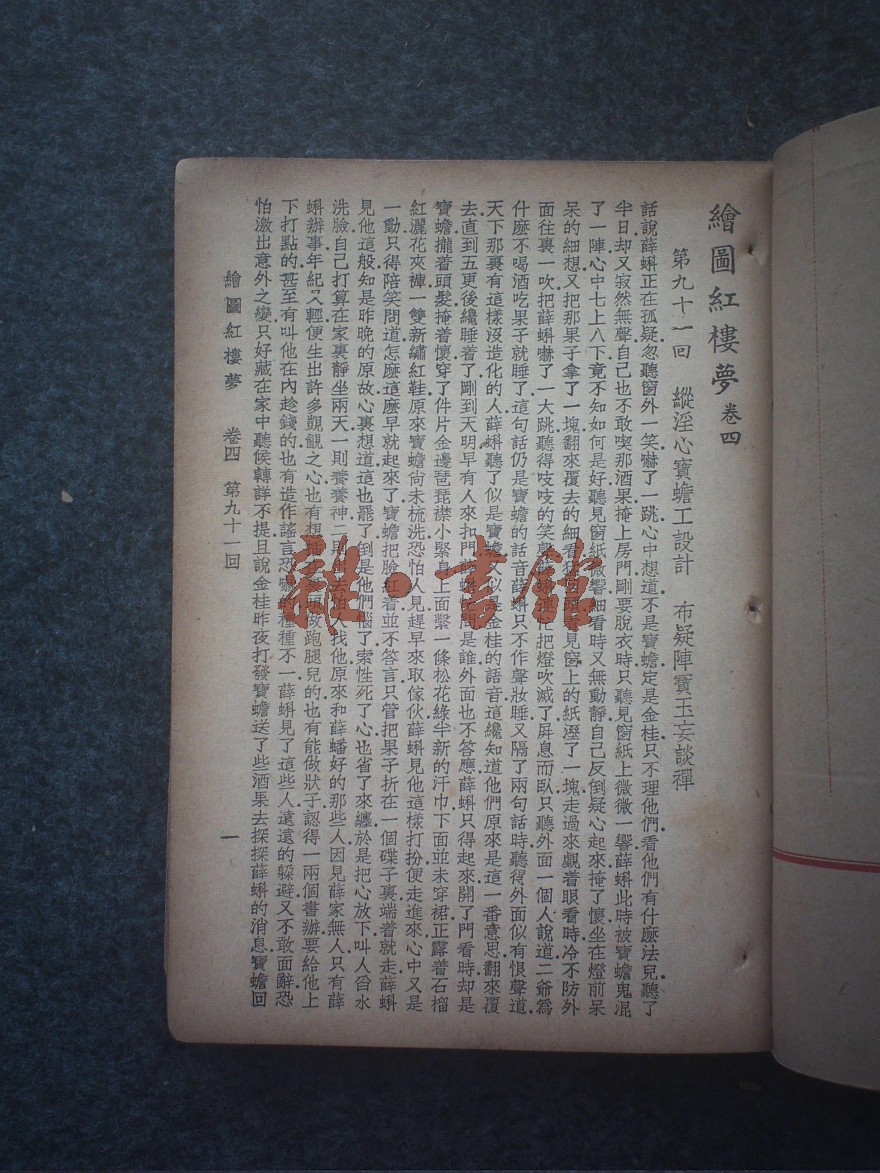 繪圖紅樓夢 卷四
第九十一回 縱淫心寶蟾工設計 布疑陣寶玉妄談禪
話說薛蝌正在狐疑忽聽窗外一笑嚇了一跳心中想道不是寶蟾定是金桂只不理他們看他們有什麼法兒聽了
半日却又寂然無聲自己也不敢喫那酒果掩上房門剛要脫衣時只聽見窗紙上微微一響薛蝌此時被寶蟾鬼混
了一陣心中七上八下竟不知如何是好聽見窗紙微響細看時又無動靜自己反倒疑心起來掩了懷坐在燈前呆
呆的細想又把那果子拿了一塊翻來覆去的細看猛回頭看見窗上的紙溼了一塊走過來覷着眼看時冷不防外
面往裏一吹把薛蝌嚇了一大跳聽得吱吱的笑聲薛蝌連忙把燈吹滅了屏息而臥只聽外面一個人說道二爺爲
什麼不喝酒吃果子就睡了這句話仍是寶蟾的話音薛蝌只不作聲妝睡又隔了兩句話時聽得外面似有恨聲道
天下那裏有這樣沒造化的人薛蝌聽了似是寶蟾又似是金桂的語音這纔知道他們原來是這一番意思翻來覆
去直到五更後纔睡着了剛到天明早有人來扣門薛蝌忙問是誰外面也不答應薛蝌只得起來開了門看時却是
寶蟾攏着頭髮掩着懷穿了件片金邊琵琶襟小緊身上面繫一條松花綠半新的汗巾下面並未穿裙正露着石榴
紅灑花夾褲一雙新繡紅鞋原來寶蟾尚未梳洗恐怕人見趕早來取傢伙薛蝌見他這樣打扮便走進來心中又是
一動只得陪笑問道怎麼這麼早就起來了寶蟾把臉紅着並不答言只管把果子折在一個碟子裏端着就走薛蝌
見他這般知是昨晚的原故心裏想道這也罷了倒是他們惱了索性死了心也省了來纏於是把心放下叫人舀水
洗臉自己打算在家裏靜坐兩天一則養養神二則出去怕人找他原來和薛蟠好的那些人因見薛家無人只有薛
蝌辦事年紀又輕便生出許多覬覦之心也有想插在裏頭做跑腿兒的也有能做狀子認得一兩個書辦要給他上
下打點的甚至有叫他在內趁錢的也有造作謠言恐嚇的種種不一薛蝌見了這些人遠遠的躲避又不敢面辭恐
怕激出意外之變只好藏在家中聽候轉詳不提且說金桂昨夜打發寶蟾送了些酒果去探探薛蝌的消息寶蟾回
繪圖紅樓夢 卷四 第九十一回 一
雜·書館